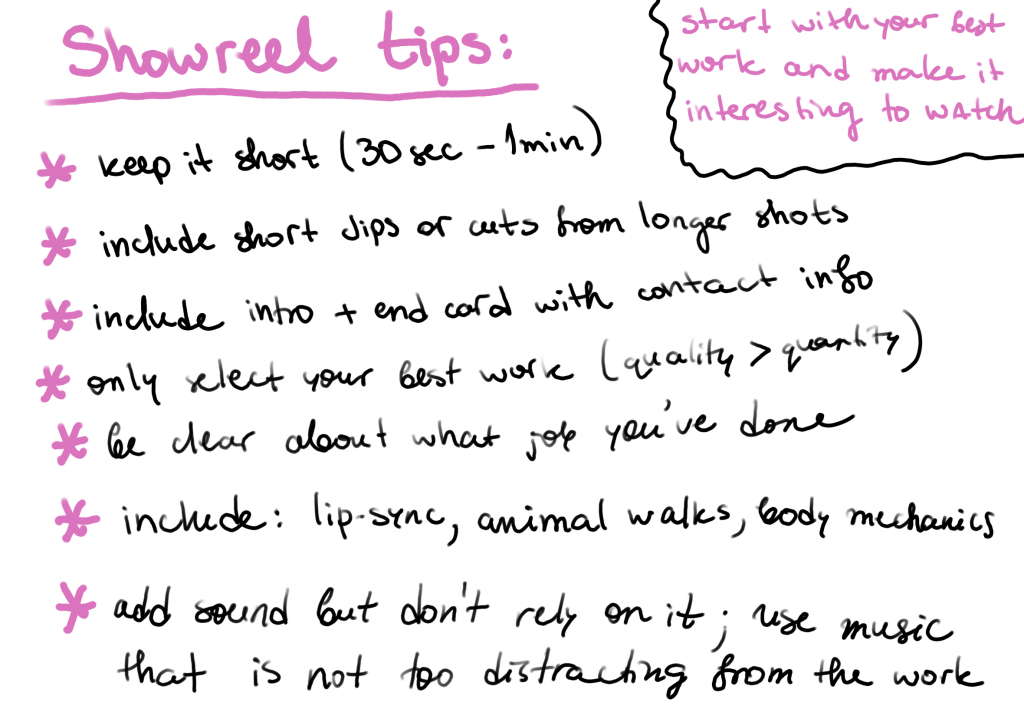 Showreel tips:
start with your best
work and make it
interesting to watch
* keep it short (30sec - 1min)
* include short clips or cuts from longer shots
* include intro + end card with contact info
* only select your best work (quality > quantity)
* be clear about what job you've done
* include: lip-sync, animal walks, body mechanics
* add sound but don't rely on it; use music
that is not too distracting from the work